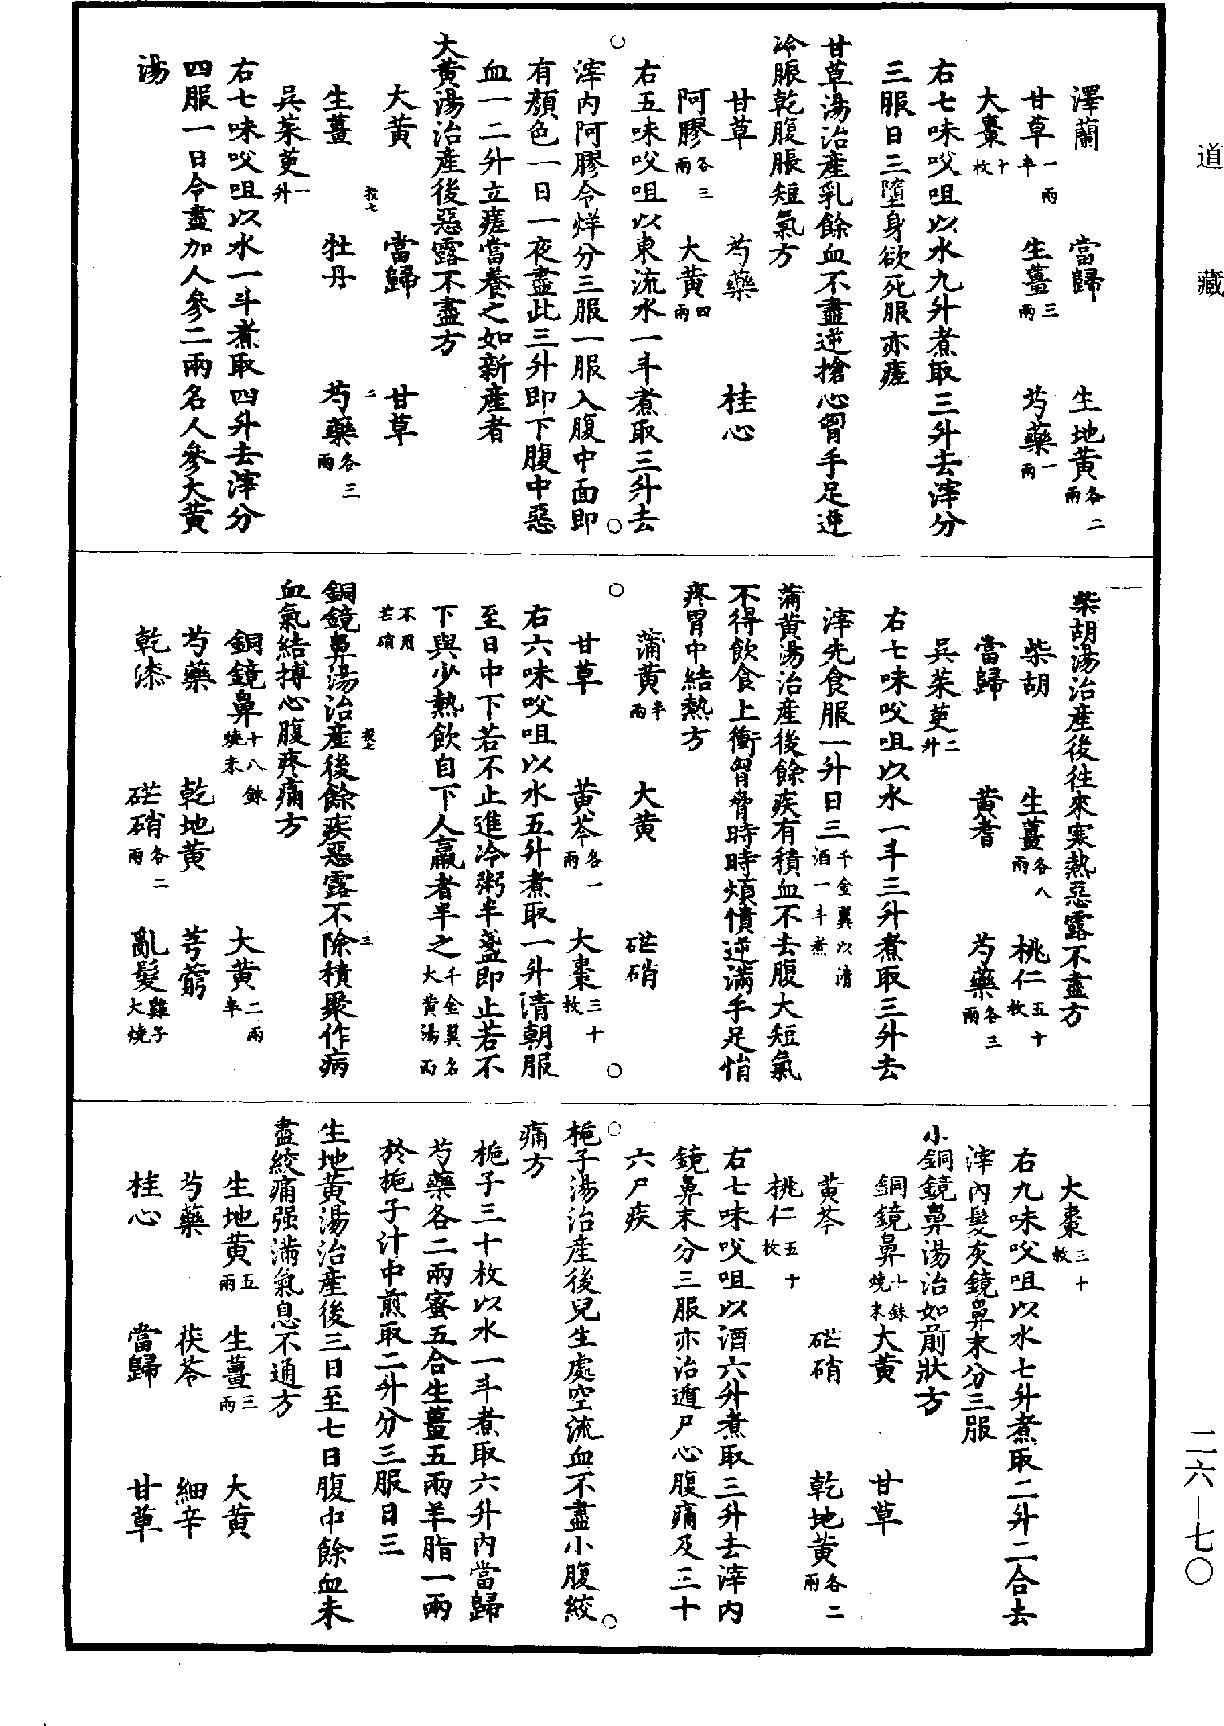 道藏
澤蘭　當歸　生地黃各二兩
甘草一兩半　生薑三兩　芍藥一兩
大棗十枚
右七味㕮咀以水九升煮取三升去滓分
三服日三墮身欲死服亦瘥
甘草湯治產乳餘血不盡逆搶心胷手足逆
冷脹乾腹脹短氣方
甘草　芍藥　桂心
阿膠各三兩　大黃四兩
右五味㕮咀以東流水一斗煮取三升去
滓内阿膠令烊分三服一服入腹中面即
有顏色一日一夜盡此三升即下腹中惡
血一二升立瘥當養之如新產者
大黃湯治產後惡露不盡方
大黃　當歸　甘草
殺七　二
生薑　牡丹　芍藥各三兩
吳茱萸一升
右七味㕮咀以水一斗煮取四升去滓分
四服一日令盡加人參二兩名人參大黃
湯
柴胡湯治產後往來寒熱惡露不盡方
柴胡　生薑各八兩　桃仁五十枚
當歸　黃耆　芍藥各三兩
吳茱萸二升
右七味㕮咀以水一斗三升煮取三升去
滓先食服一升日三千金翼以清酒一斗煮
蒲黃湯治產後餘疾有積血不去腹大短氣
不得飲食上衝胷脅時時煩憒逆滿手足悁
疼胃中結熱方
蒲黃半兩　大黃　芒硝
甘草　黃芩各一兩　大棗三十枚
右六味㕮咀以水五升煮取一升清朝服
至日中下若不止進冷粥半盞即止若不
下與少熱飲自下人羸者半之千金翼名大黃湯而
不用芒硝
銅鏡鼻湯治產後餘疾惡露不除積聚作病
血氣結搏心腹疼痛方
銅鏡鼻十八銖燒末　大黃二兩半
芍藥　乾地黃　芎藭
乾漆　芒硝各二兩　亂髮雞子大燒
大棗三十枚
右九味㕮咀以水七升煮取二升二合去
滓内髮灰鏡鼻末分三服
小銅鏡鼻湯治如前狀方
銅鏡鼻十銖燒末　大黃　甘草
黃芩　芒硝　乾地黃各二兩
桃仁五十枚
右七味㕮咀以酒六升煮取三升去滓内
鏡鼻末分三服亦治遁尸心腹痛及三十
六尸疾
梔子湯治產後兒生處空流血不盡小腹絞
痛方
梔子三十枚以水一斗煮取六升内當歸
芍藥各二兩蜜五合生薑五兩羊脂一兩
於梔子汁中煎取二升分三服日三
生地黃湯治產後三日至七日腹中餘血未
盡絞痛强滿氣息不通方
生地黃五兩　生薑三兩　大黃
芍藥　茯苓　細辛
桂心　當歸　甘草
二六—七〇